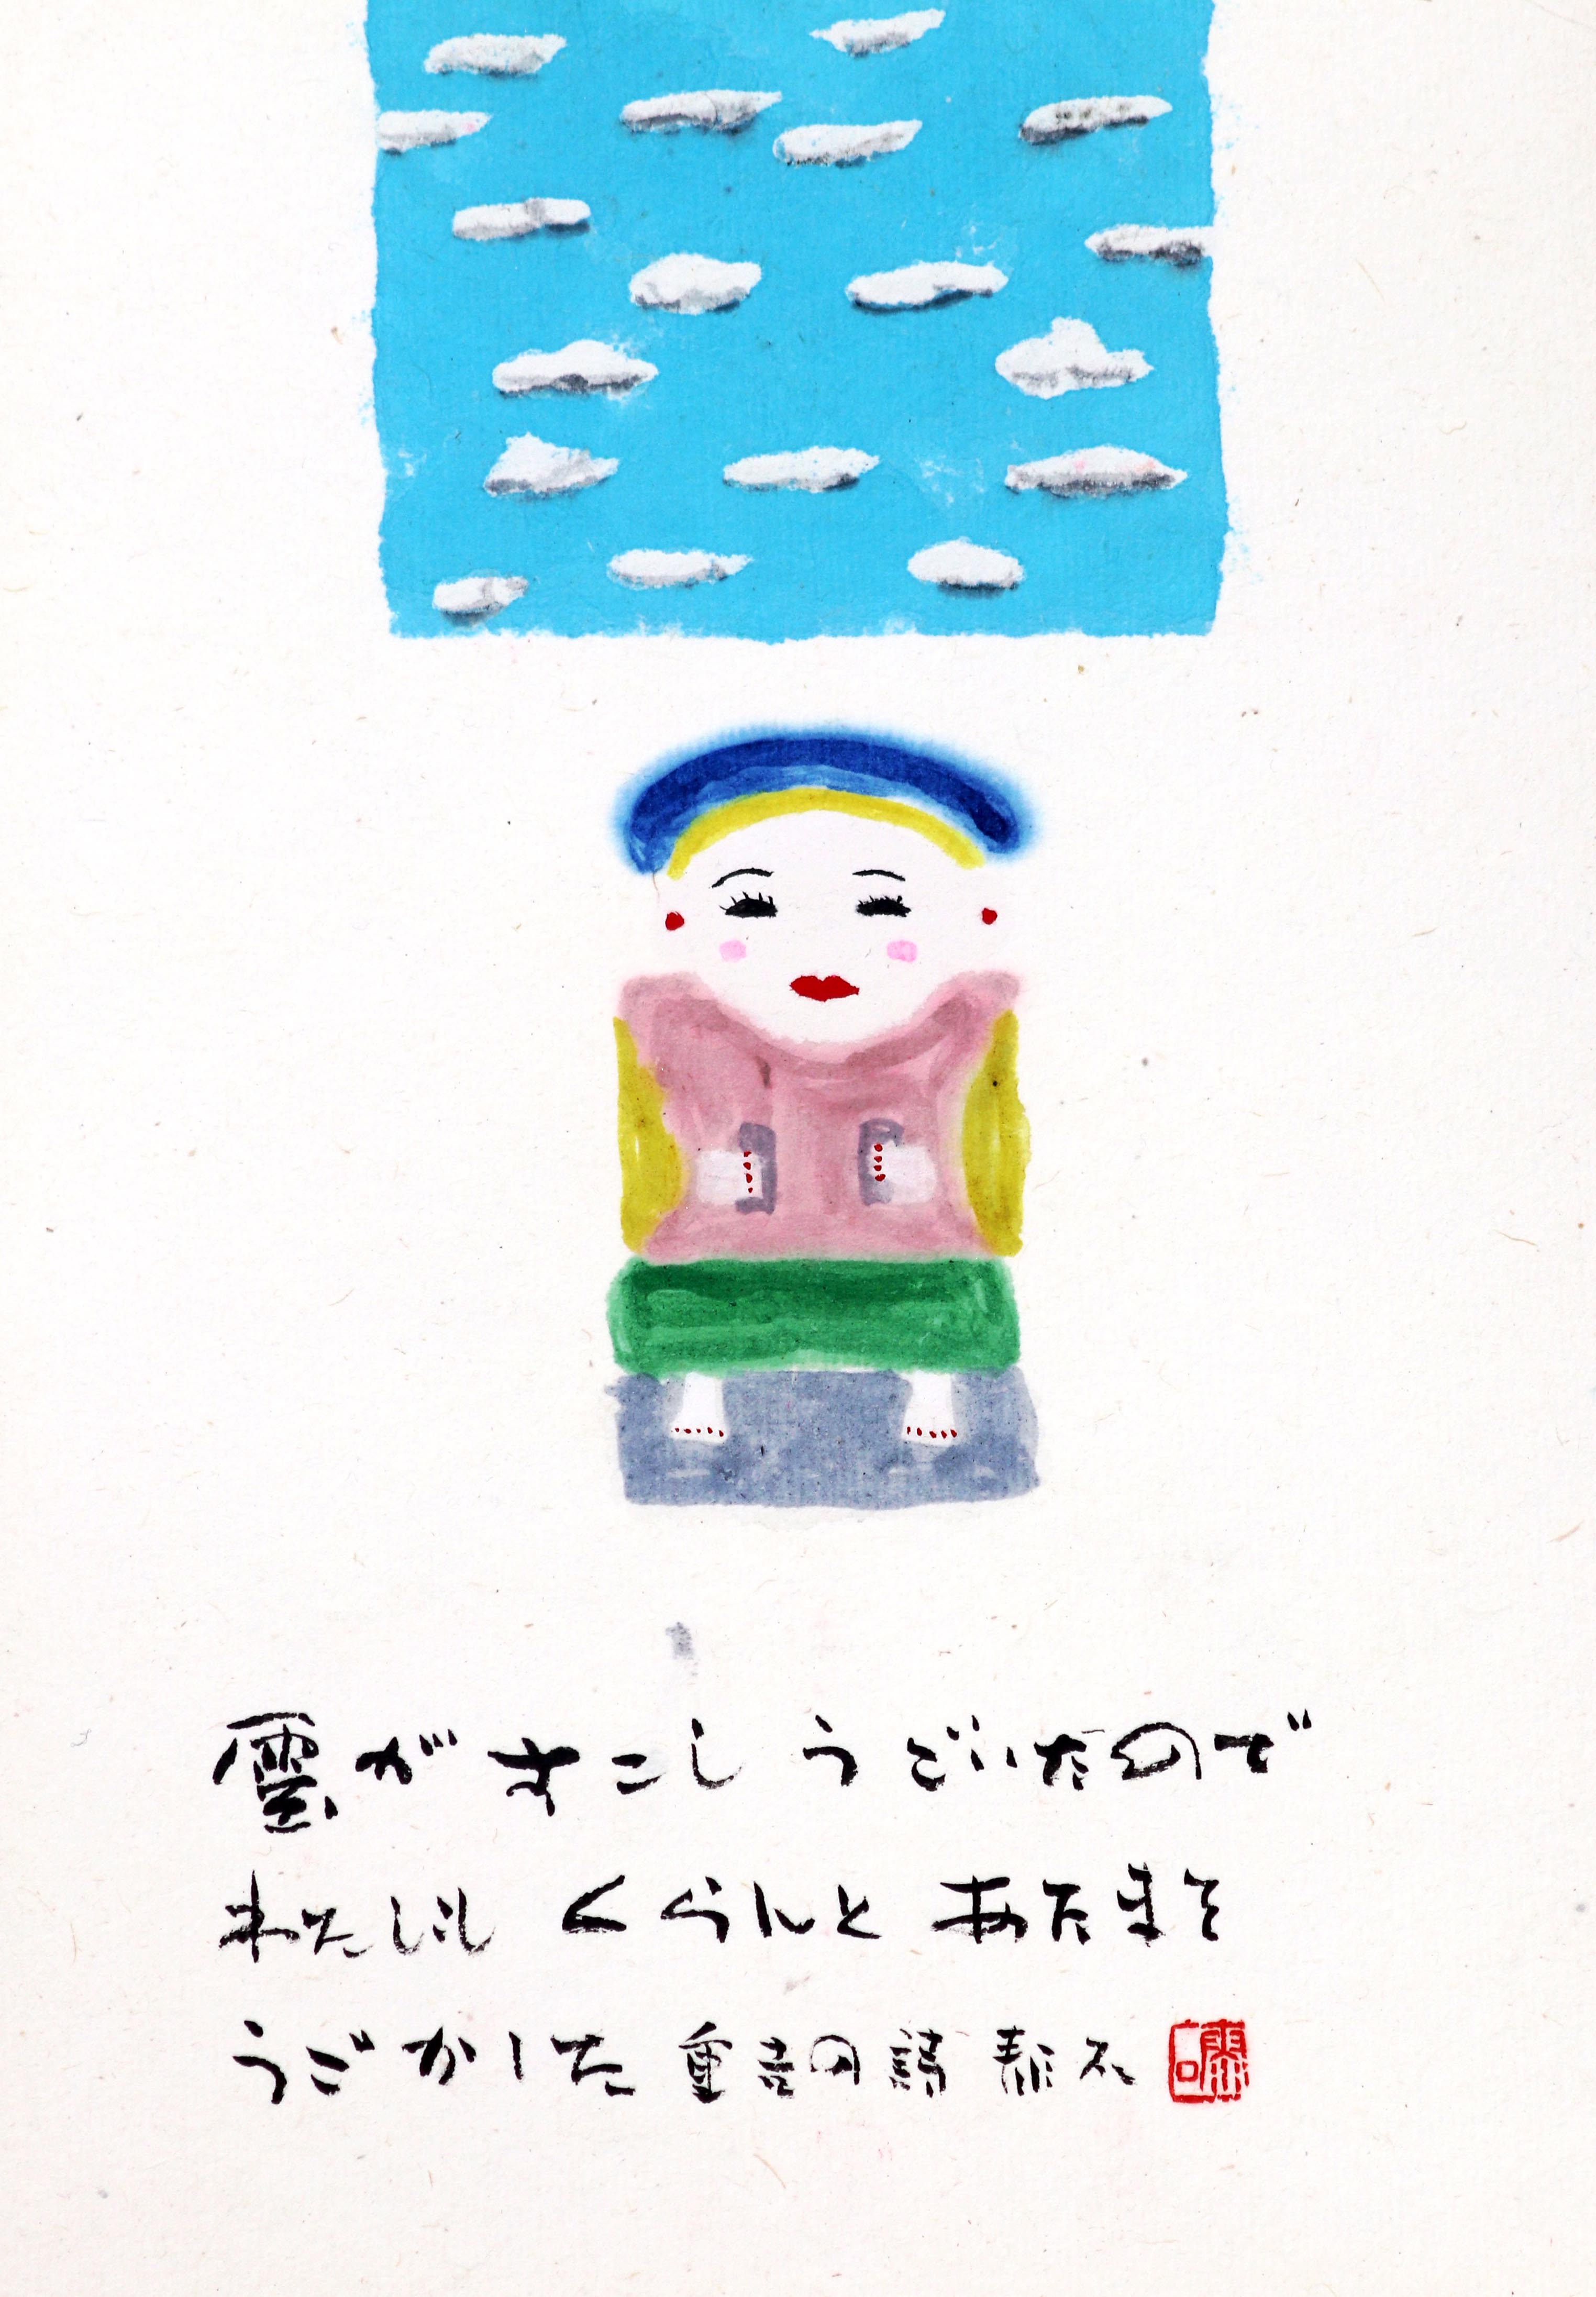 雲がすこしうごいたので
わたしも くらんと あたまを
うごかした 重吉の詩 泰不